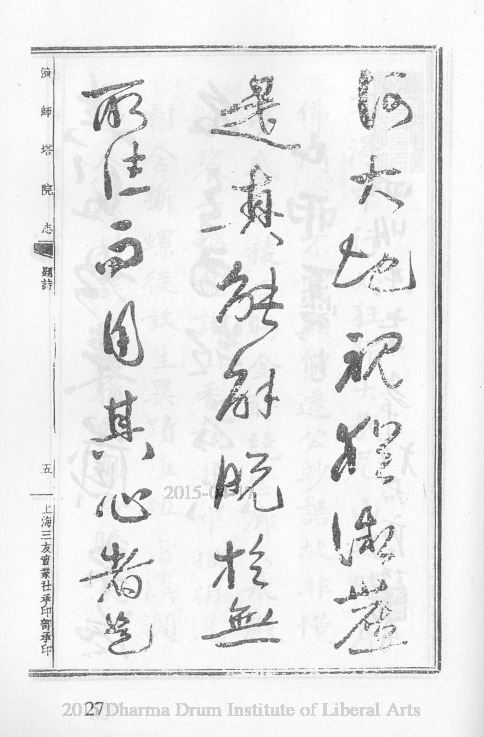 河大地視猶微塵
是真能解脫於無
所住而用其心者是
濟師塔院志 題詩 五 上海三友實業社承印部承印
27
Dharma Drum Institute of Liberal Arts